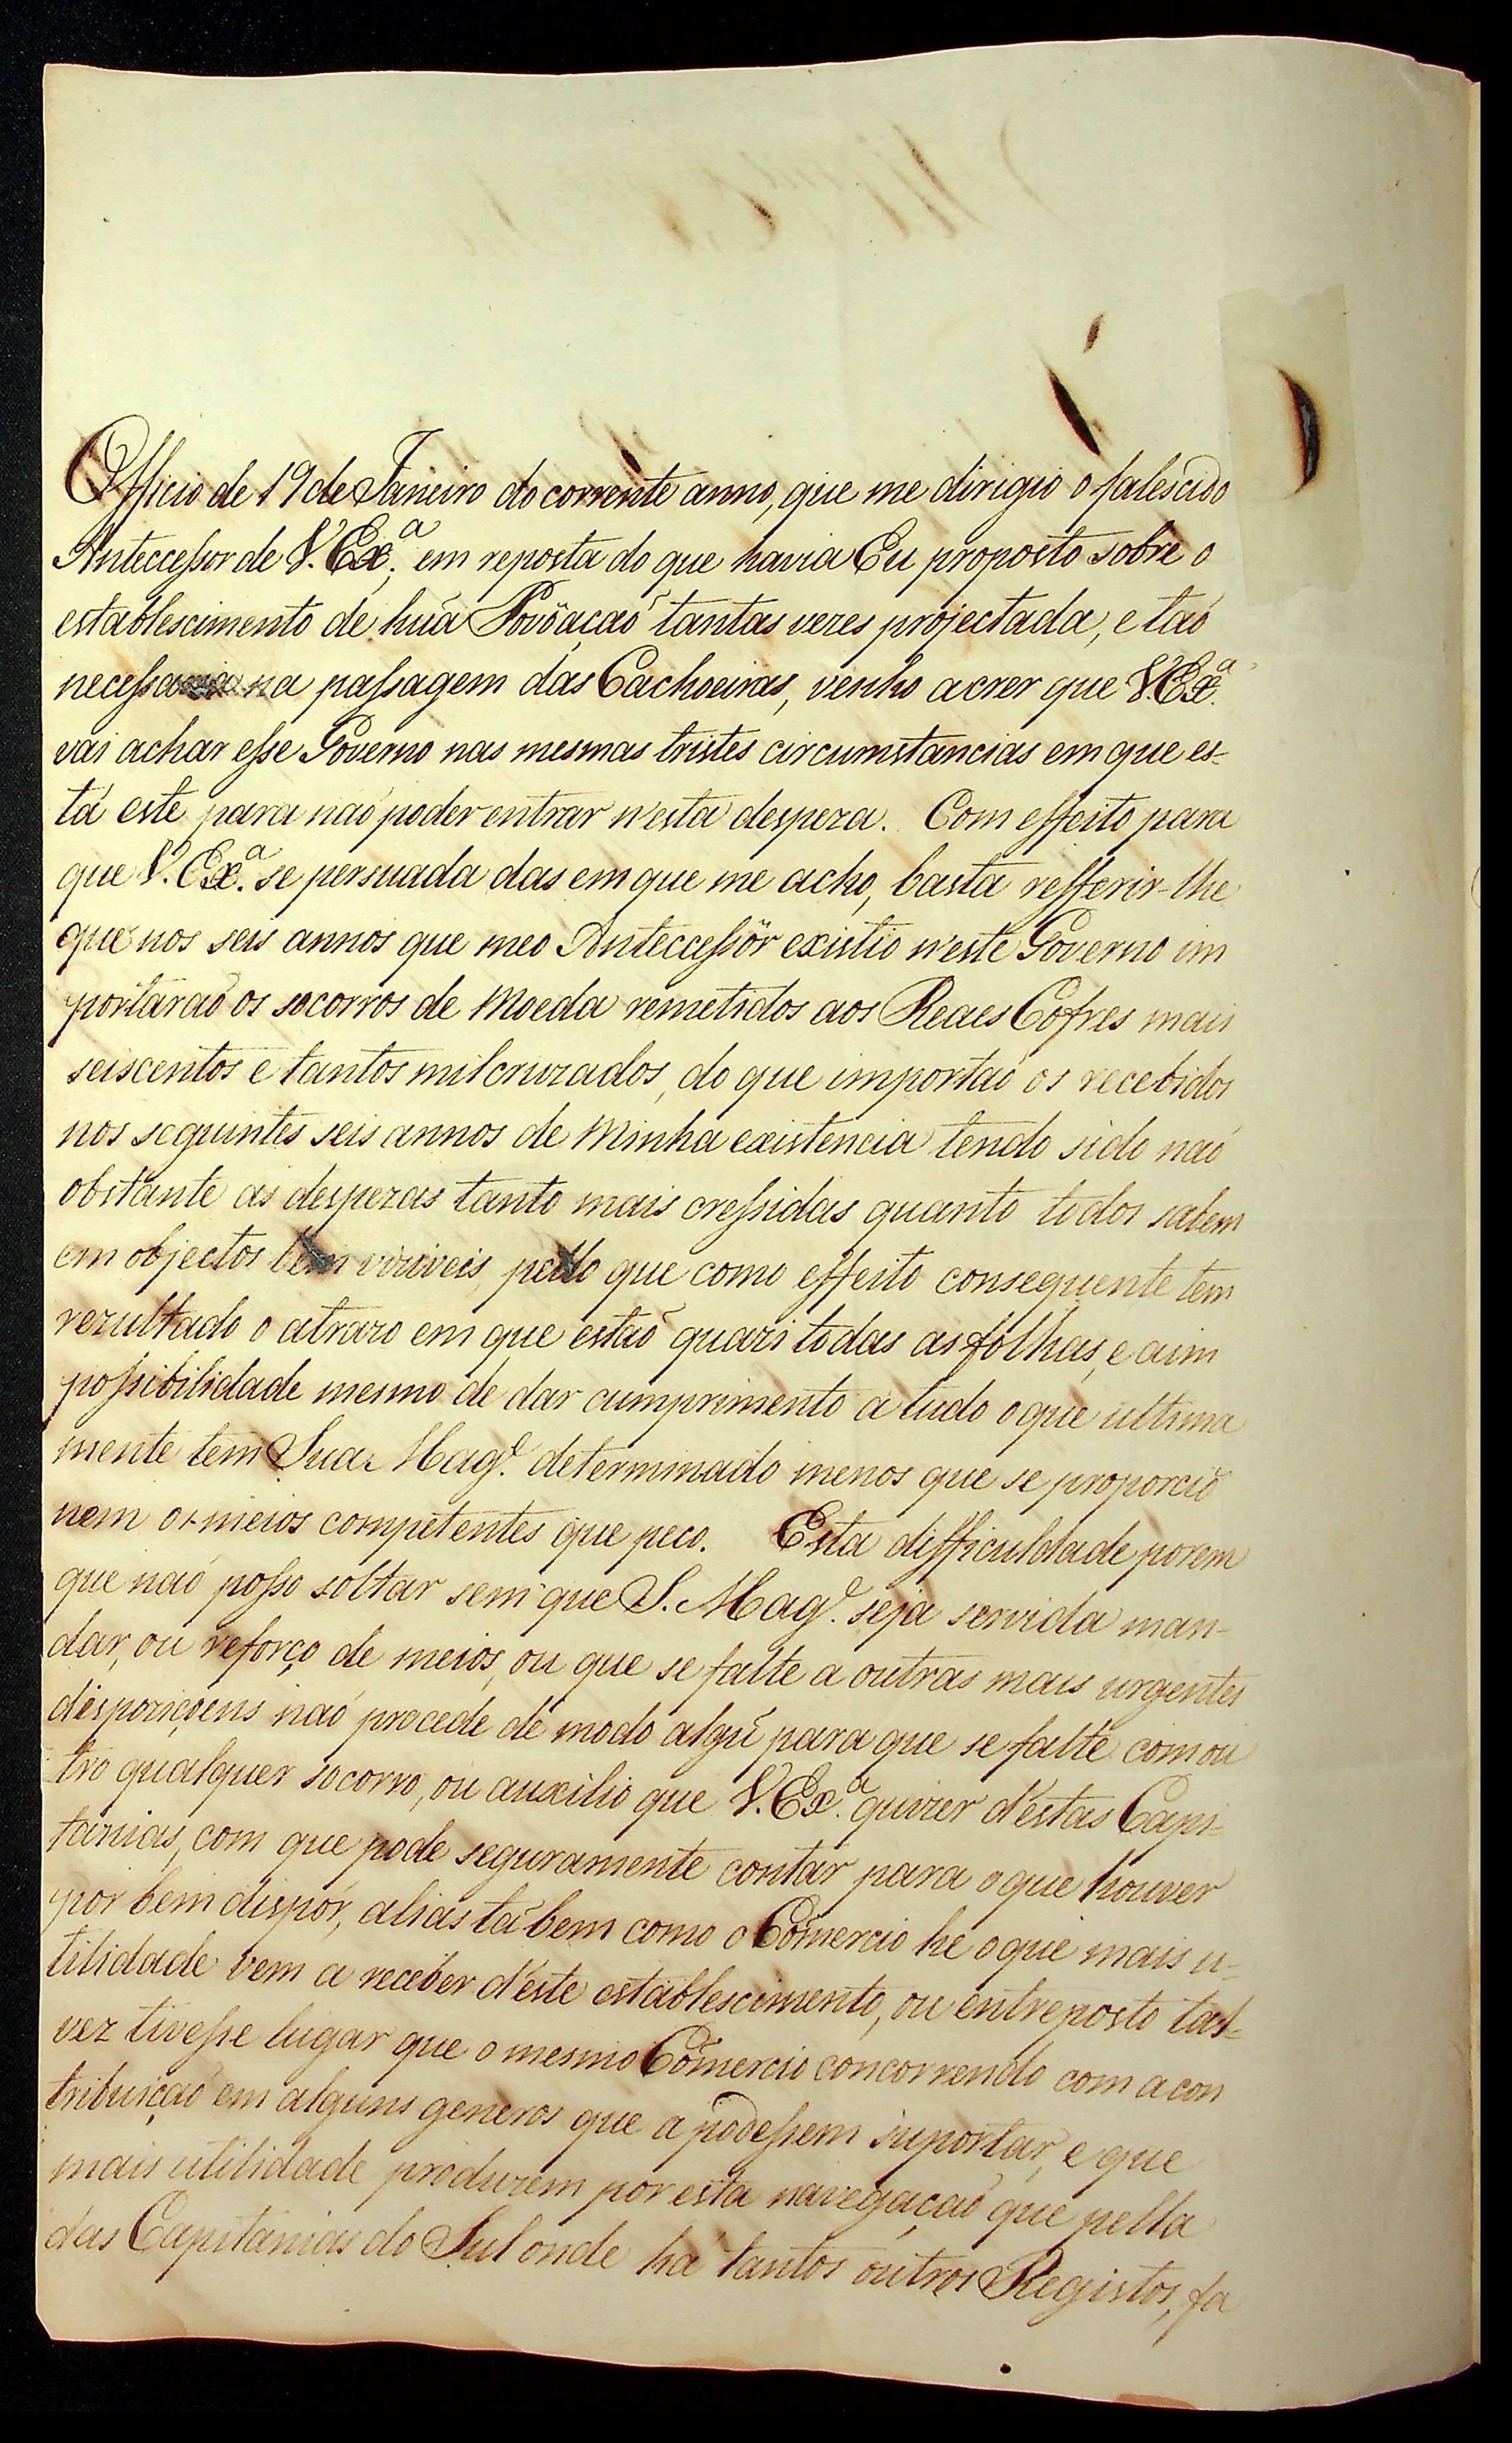 Officio de 19 de Janeiro do corrente anno, que me dirigio o falescido
Anteceſsor de V. Ex.ª, em reposta do que havia Eu proposto sobre o
establescimento de huã Povoaçaõ tantas vezes projectada, e taõ
neceſsaria na paſsagem das Cachoeiras, venho a crer que V. Ex.ª
vai achar eſse Governo nas mesmas tristes circumstancias em que es-
tá este para naõ poder entrar n'esta despeza. Com effeito para
que V. Ex.ª se persuada das em que me acho, basta refferir-lhe
que nos seis annos que meo Anteceſsôr existio n'este Governo im
portáraõ os socorros de Moeda remetidos aos Reaes Cofres mais
seiscentos e tantos mil cruzados, do que importaõ os recebidos
nos seguintes seis annos de Minha existencia tendo sido naõ
obstante as despezas tanto mais creſsidas quanto todos sabem
em objectos bem viziveis, pello que como effeito consequente tem
rezultado o atrazo em que estaõ quazi todas as folhas, e a im
poſsibilidade mesmo de dar cumprimento a tudo o que ultima
mente tem Sua Mag.e determinado menos que se proporcio
nem os meios competentes que peço. Esta difficuldade porem
que naõ poſso soltar sem que S. Mag.e seja servida man-
dar, ou reforço de meios, ou que se falte a outras mais urgentes
dispoziçoens naõ procede de modo algũ para que se falte com ou
tro qualquer socorro, ou auxilio que V. Ex.ª quizer d'estas Capi-
tanias, com que pode seguramente contar para o que houver
por bem dispôr, aliás taõbem como o Cõmercio he o que mais u-
tilidade vem a receber d'este establescimento, ou entreposto tal-
vez tiveſse lugar que o mesmo Cõmercio concorrendo com a con
tribuiçaõ em alguns generos que a podeſsem suportar, e que
mais utilidade produzem por esta navegaçaõ que pella
das Capitanias do Sul onde há tantos outros Registos, fa